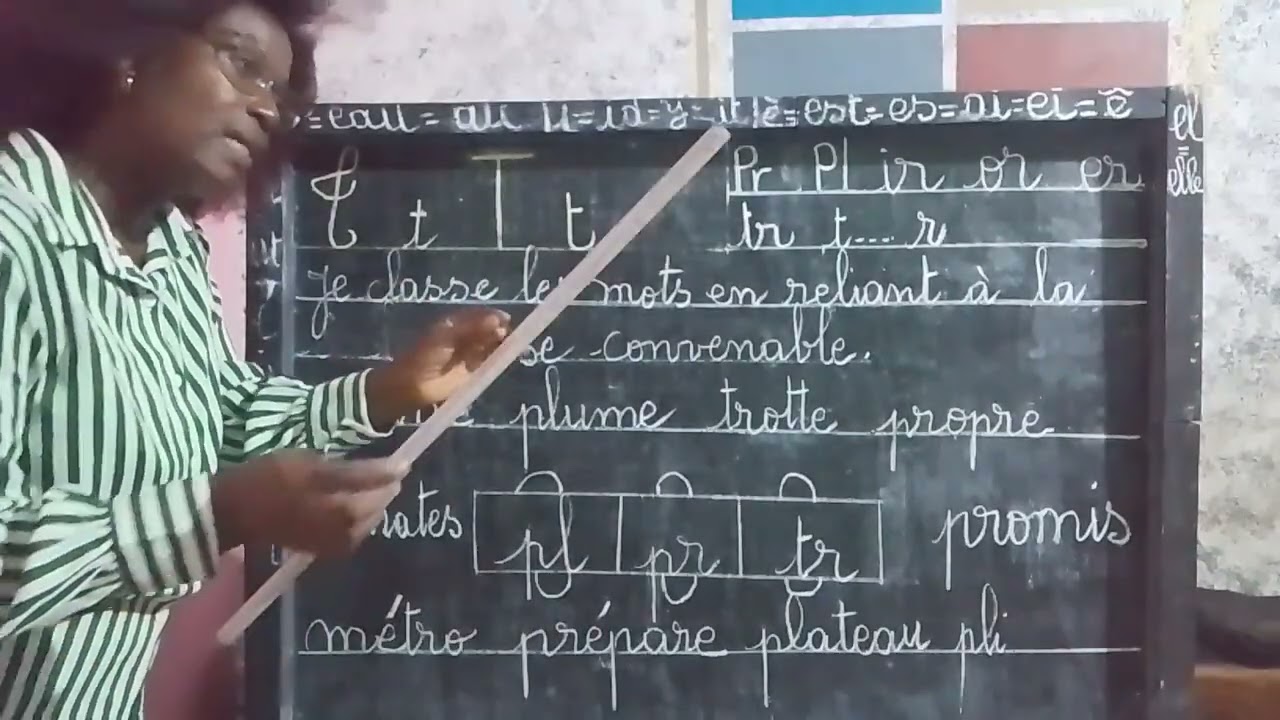 = eau = au u = id = y = it è = est = es = ai = ei = ê
el
=
elle
T t T t
Pr Pl ir or er
tr t.... r
Je classe les mots en reliant à la
convenable.
plume trotte propre
pl pr tr promis
métro prépare plateau pli